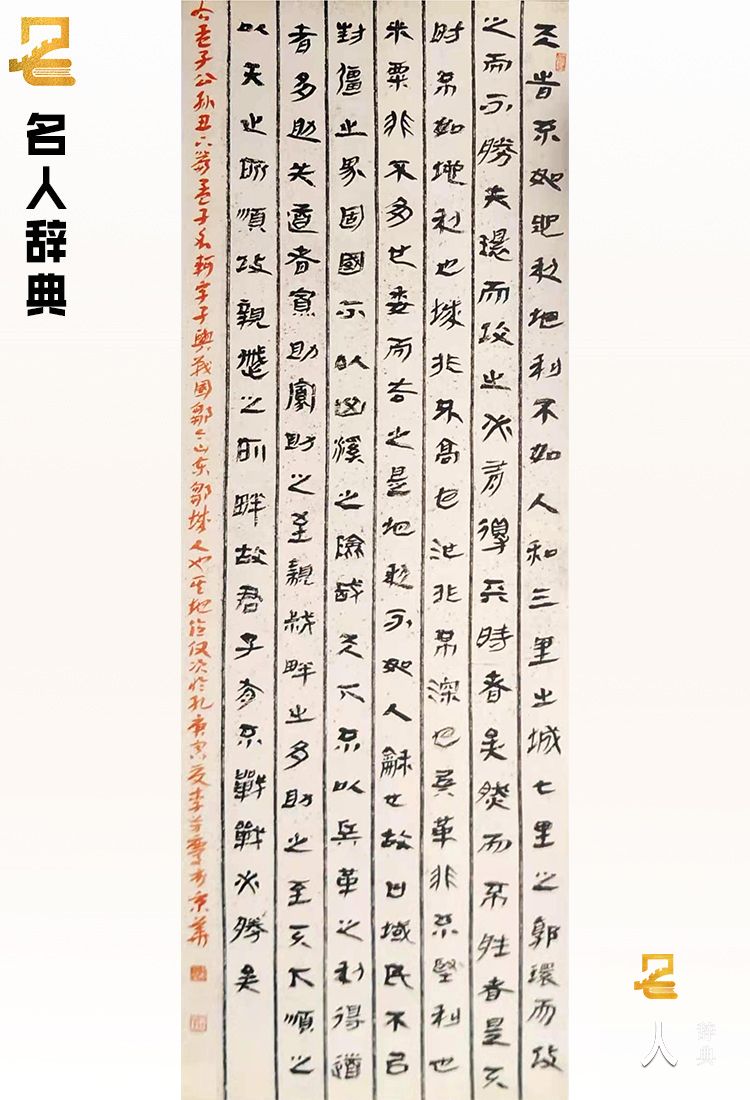 名人辞典
天旹不如地利地利不如人和三里之城七里之郭環而攻
之而不勝夫環而攻之必有得天時者矣然而不胜者是天
时不如地利也城非不高也池非不深也兵革非不堅利也
米粟非不多也委而去之是地利不如人龢也故曰域民不以
封疆之界固國不以山溪之險威天下不以兵革之利得道
者多助失道者寡助寡助之至親戚畔之多助之至天下順之
以天之所順攻親戚之所畔故君子有不戰戰必勝矣
孟子公孙丑下篇孟子名軻字子輿战国鄒今山东鄒城人也其地位仅次於孔庚寅夏李书京華
人
辞典